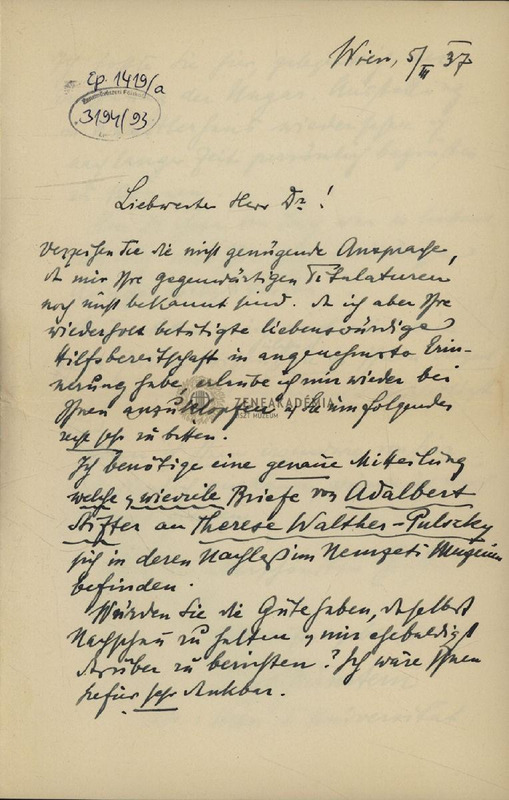 Wien, 5/III 37
Ep. 1419/a
3194/93
Liebwerter Herr Dr!
Verzeihen Sie die nicht genügende Ansprache,
da mir Ihre gegenwärtigen Titulaturen
noch nicht bekannt sind. Da ich aber Ihre
wiederholt betätigte liebenswürdige
Hilfsbereitschaft in angenehmster Erin-
nerung habe, erlaube ich mir wieder bei
Ihnen anzuklopfen u. Sie um folgendes
recht sehr zu bitten.
ZENEAKADÉMIA
LISZT MÚZEUM
Ich benötige eine genaue Mitteilung
welche u. wieviele Briefe von Adalbert
Stifter an Therese Walther-Pulszky
sich in deren Nachlaß im Nemzeti Muzeum
befinden.
Würden Sie die Güte haben, daselbst
Nachschau zu halten u. mir ehebaldigst
darüber zu berichten? Ich wäre Ihnen
hiefür sehr dankbar.